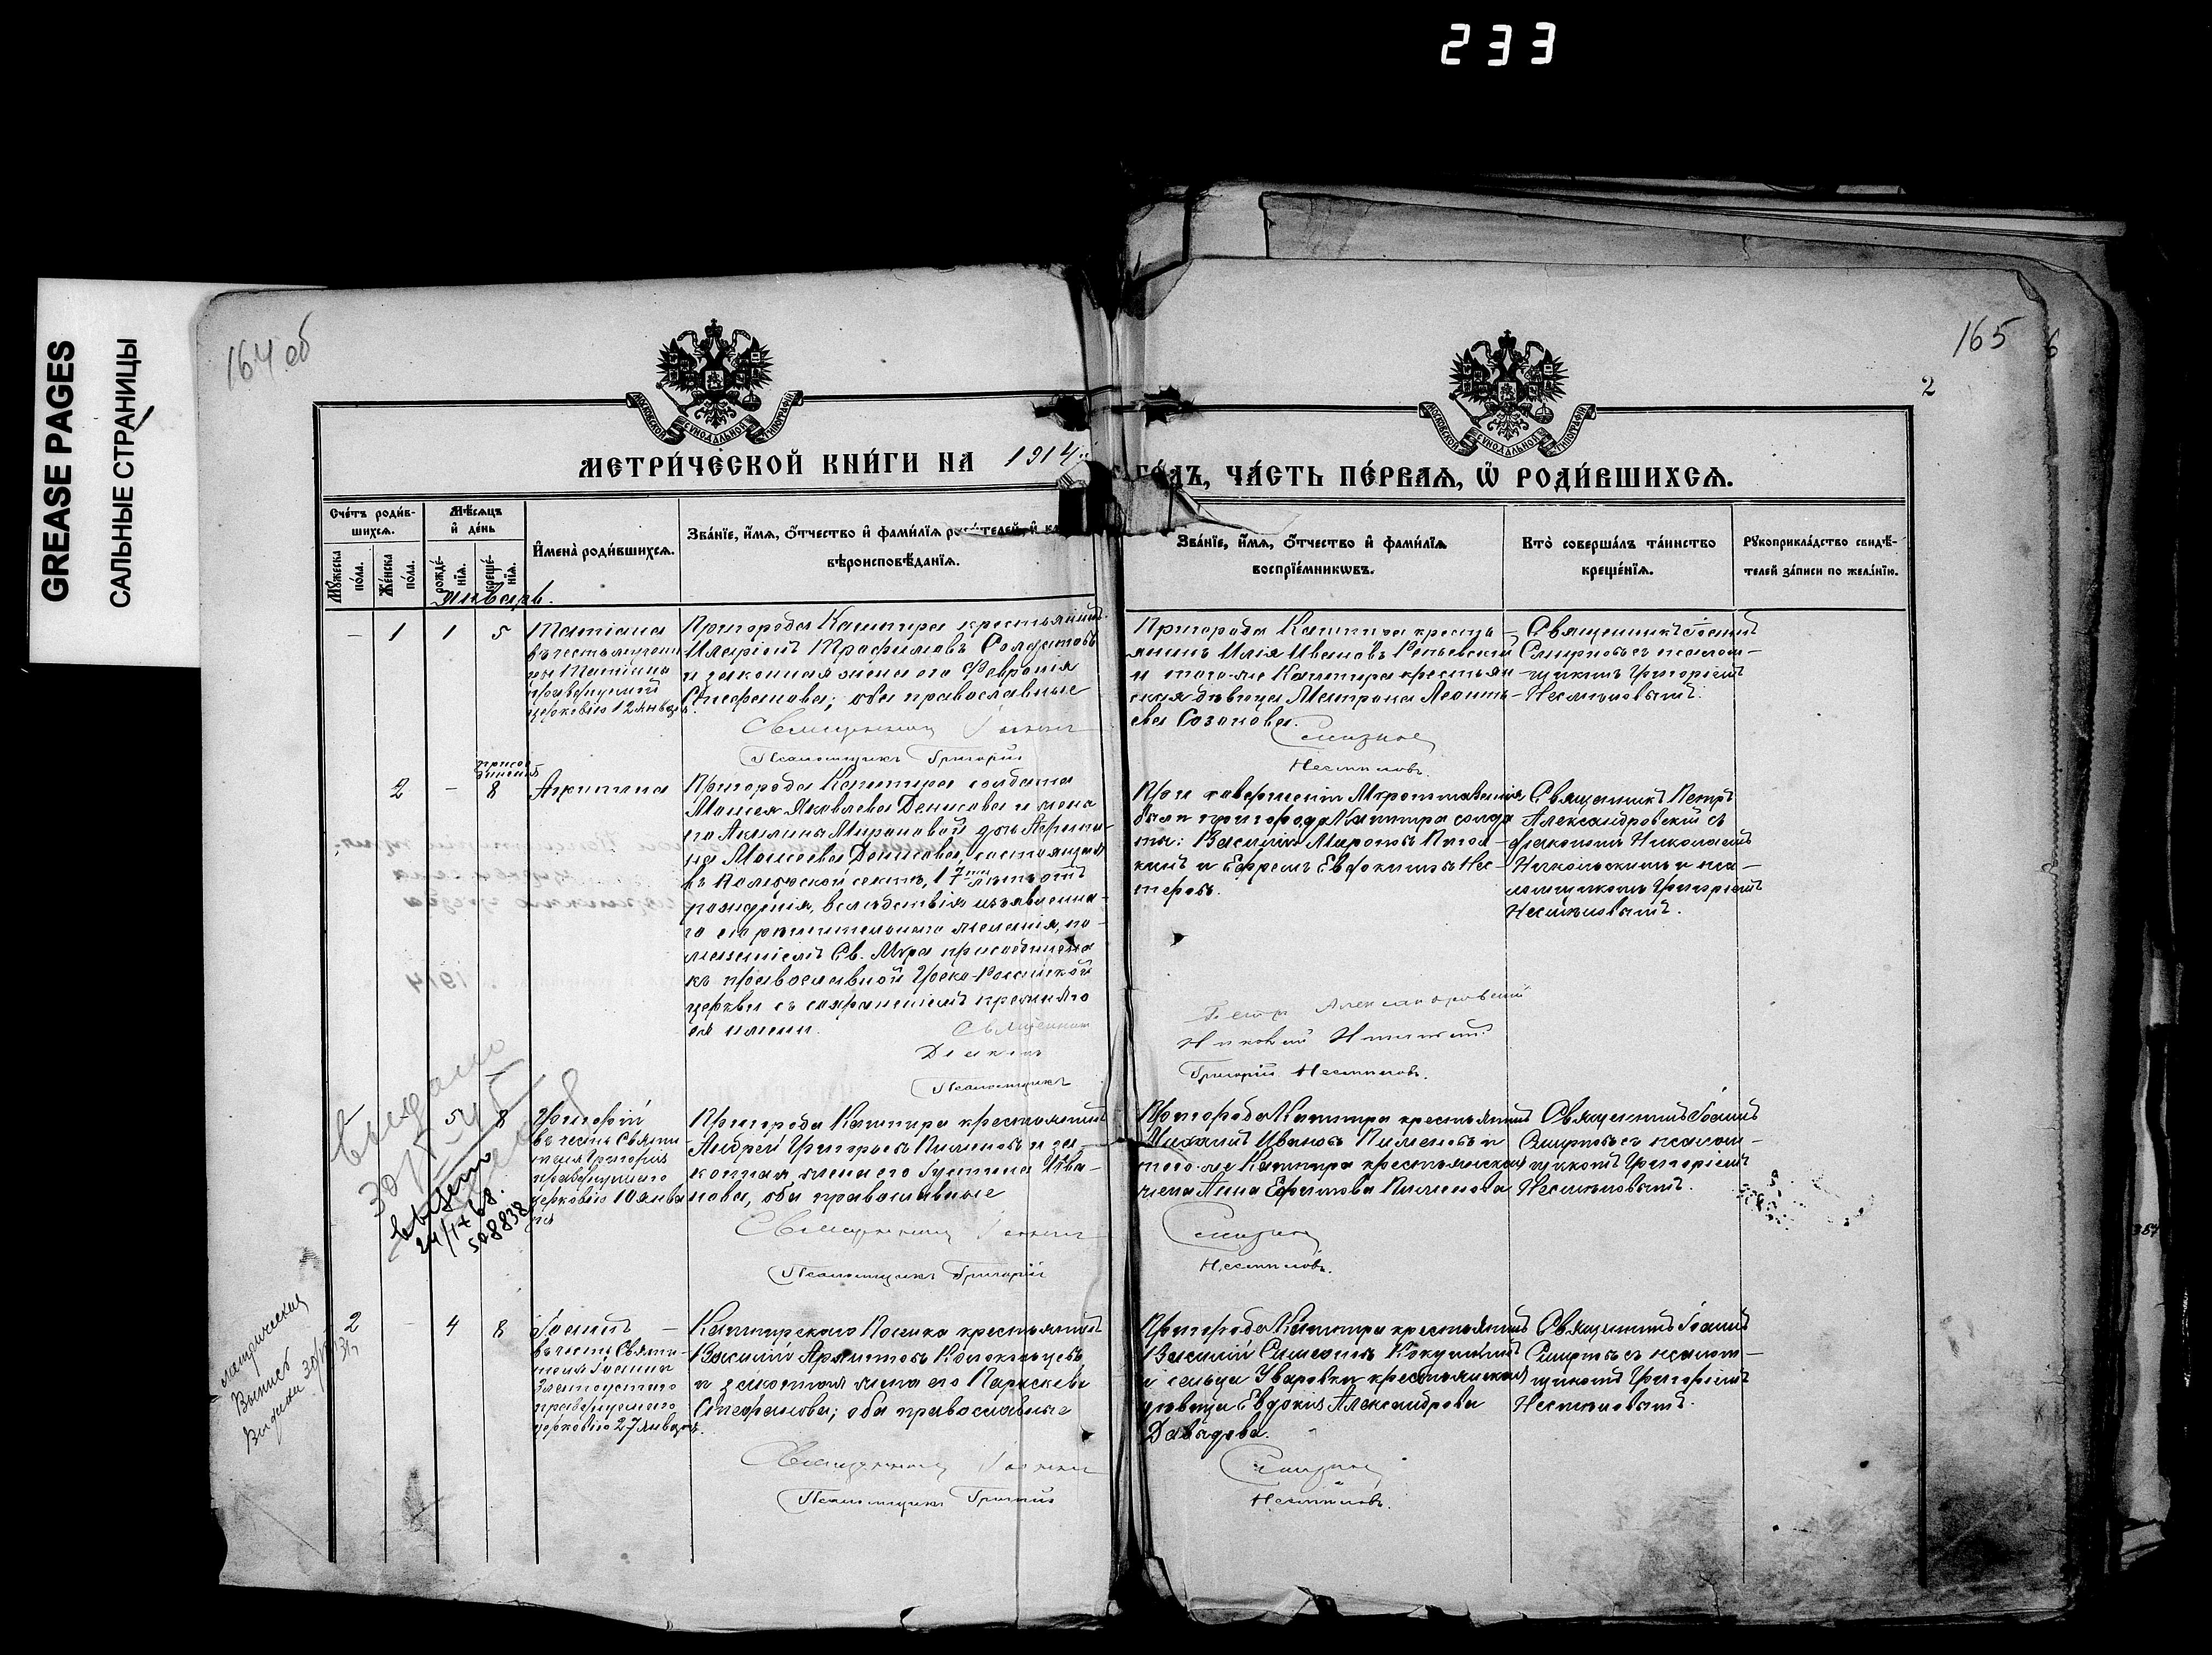 233
GREASE PAGES
САЛЬНЫЕ СТРАНИЦЫ
164 об
165
6
2
МОСКОВСКОЙ СѴНОДАЛЬНОЙ ТИПОГРАФІИ
МОСКОВСКОЙ СѴНОДАЛЬНОЙ ТИПОГРАФІИ
МЕТРИ́ЧЕСКОЙ КНИ́ГИ НА 1914
ГО́ДЪ, ЧА́СТЬ ПЕ́РВАѦ, Ѡ҆ РОДИ́ВШИХСѦ.
Сче́тъ роди́в-
шихсѧ.
Мѣ́сѧцъ
и҆ де́нь
Мꙋ́жеска
по́ла.
Же́нска
по́ла.
рожде́-
нїѧ.
креще́-
нїѧ.
И҆мена̀ роди́вшихсѧ.
Зва́нїе, и҆́мѧ, ѻ҆́тчество и҆ фами́лїѧ
вѣроисповѣ́данїѧ.
Зва́нїе, и҆́мѧ, ѻ҆́тчество и҆ фами́лїѧ
воспрїе́мникѡвъ.
Кто̀ соверша́лъ та́инство
креще́нїѧ.
Рꙋкоприкла́дство свидѣ́-
телей за́писи по жела́нїю.
Январь.
– 1 1 5
Татіана
въ честь мучени
цы Татіаны
празднуемой
церковію 12 января.
Пригорода Каштира крестьянинъ
Трофимовъ Солдатовъ
и законная жена его Феврония
Стефанова; оба православные
Священникъ Іоаннъ
Псаломщикъ Григорій
Пригорода Каштира кресть-
янинъ Илія Ивановъ
и того-же Каштира крестьян
ская дѣвица Матрона Леонть-
ева Созонова.
Смирнов
Несмѣловъ.
Священникъ Іоаннъ
Смирновъ съ псалом-
щикомъ Григоріемъ
Несмѣловымъ.
2 – 8
Пригорода Каштира солдата
Моисея Яковлева Денисова и жены
его Акилины Мироновой дочь
Моисеева Денисова, состоящая
въ сектѣ, 17 лѣтъ отъ
рожденія, вслѣдствіе изъявленна-
го ею рѣшительнаго желанія, по-
мазаніемъ Св. Мѵра присоединена
къ православной Греко-Россійской
церкви съ сохраненіемъ прежняго
ея имени.
Священникъ
Діаконъ
Псаломщикъ
При совершеніи Мѵропомазанія
были пригорода Каштира солда
ты: Василій Мироновъ
и Ефремъ Евдокимовъ Нес-
теровъ.
Петръ Александровскій
Николай Никольскій
Григорій Несмѣловъ.
Священникъ Петръ
Александровскій съ
діакономъ Николаемъ
Никольскимъ и пса-
ломщикомъ Григоріемъ
Несмѣловымъ.
5 8
Григорій
въ честь Святи-
теля Григорія
празднуемаго
церковію 10 янва
ря
Пригорода Каштира крестьянинъ
Андрей Григорьевъ Пименовъ и за-
конная жена его Іустина Ива-
нова, оба православные
Священникъ Іоаннъ
Псаломщикъ Григорій
Пригорода Каштира крестьянинъ
Михаилъ Ивановъ Пименовъ и
того-же Каштира крестьянская
жена Анна Ефимова Пименова
Смирнов
Несмѣловъ.
Священникъ Іоаннъ
Смирновъ съ псалом-
щикомъ Григоріемъ
Несмѣловымъ.
Выдано
24/IV 68.
508838
2 – 4 8
Іоаннъ –
въ честь Святи-
теля Іоанна
Златоустаго
празднуемаго
церковію 27 января.
Каштирскаго Поселка крестьянинъ
Василій Колокольцевъ
и законная жена его Параскева
Стефанова; оба православные
Священникъ Іоаннъ
Псаломщикъ Григорій
Пригорода Каштира крестьянинъ
Василій Симеоновъ
и сельца Уваровки крестьянская
дѣвица Евдокія Александрова
Давыдова.
Смирнов
Несмѣловъ.
Священникъ Іоаннъ
Смирновъ съ псалом-
щикомъ Григоріемъ
Несмѣловымъ.
метрическая
Выпись
Выдана